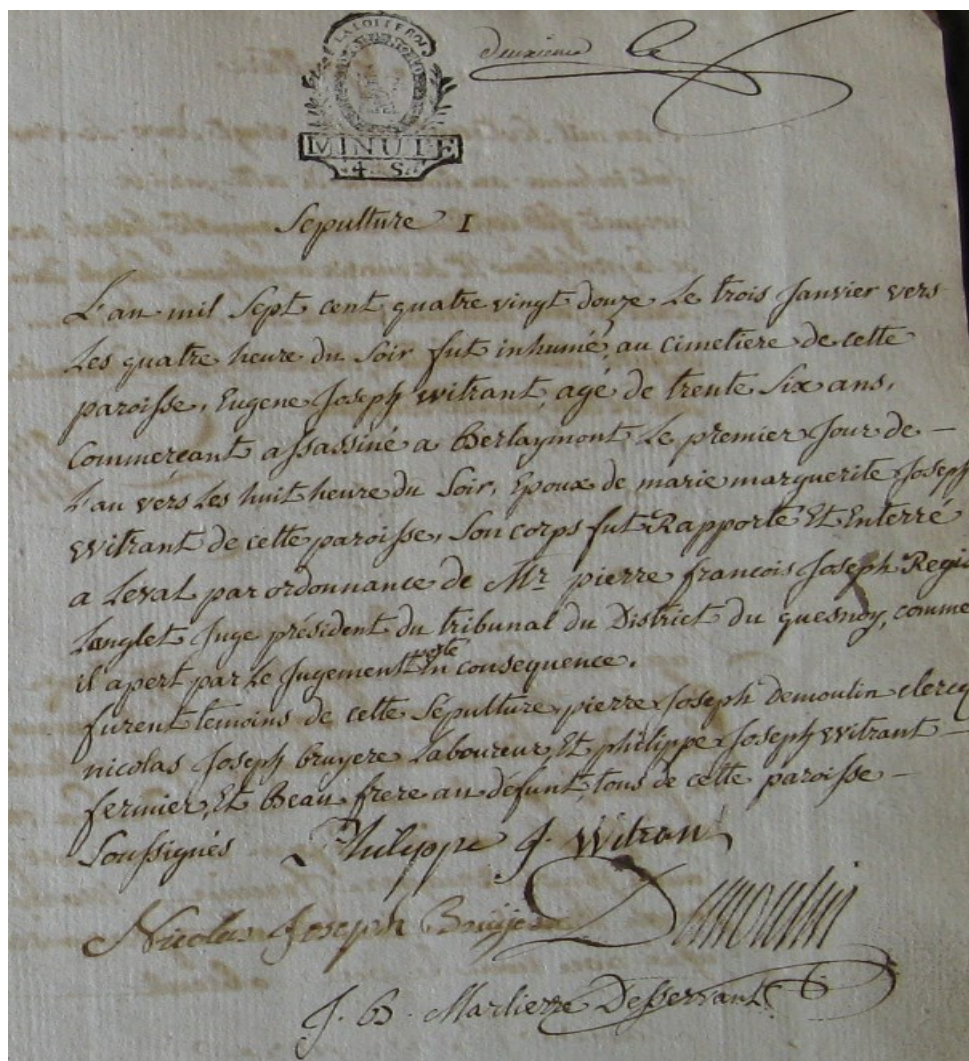 deuxieme
LA LOI ET LE ROI
MINUTE
4 S
Sepulture I
L'an mil Sept cent quatre vingt douze Le trois Janvier vers
Les quatre heure du Soir fut inhumé, au cimetiere de cette
paroisse, Eugene Joseph Witrant, agé de trente Six ans,
Commercant assassiné a Berlaymont Le premier Jour de —
L'an vers Les huit heure du Soir, Epoux de marie marguerite Joseph
Witrant de cette paroisse, Son corps fut Rapporté Et Enterré
a Leval par ordonnance de Mr pierre francois Joseph Regis
Langlet Juge président du tribunal du District du quesnoy, comme
il apert par Le Jugement porté En consequence.
furent temoins de cette Sépulture, pierre Joseph Demoulin clercq
nicolas Joseph bruyere Laboureur, Et philippe Joseph Witrant —
fermier, Et Beau frere au défunt, tous de cette paroisse —
Soussignés Philippe J. Witran
Demoulin
Nicolas Joseph
J. B. Marlierre Desservant